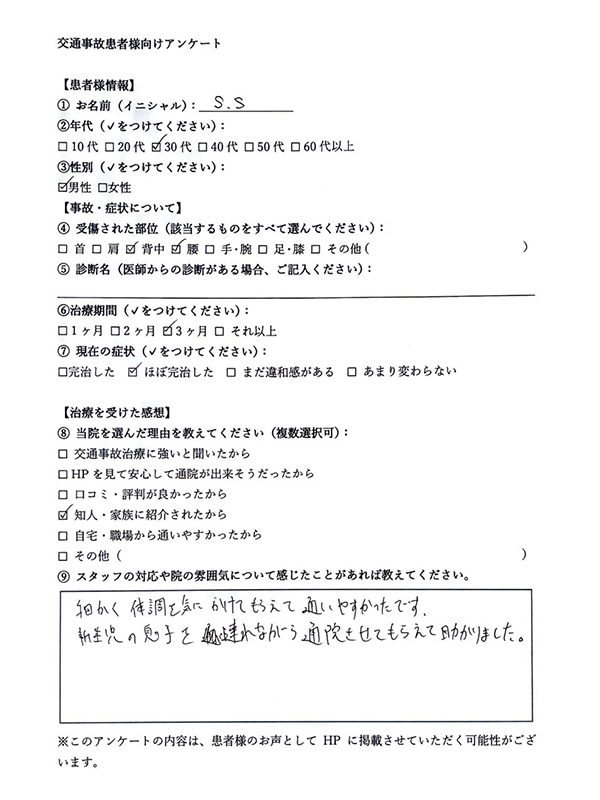 交通事故患者様向けアンケート
【患者様情報】
① お名前（イニシャル）： S.S
②年代（✓をつけてください）：
☐ 10代 ☐ 20代 ☑ 30代 ☐ 40代 ☐ 50代 ☐ 60代以上
③性別（✓をつけてください）：
☑男性 ☐女性
【事故・症状について】
④ 受傷された部位（該当するものをすべて選んでください）：
☐ 首 ☐ 肩 ☑ 背中 ☑ 腰 ☐ 手・腕 ☐ 足・膝 ☐ その他（ ）
⑤ 診断名（医師からの診断がある場合、ご記入ください）：
⑥治療期間（✓をつけてください）：
☐ 1ヶ月 ☐ 2ヶ月 ☑ 3ヶ月 ☐ それ以上
⑦ 現在の症状（✓をつけてください）：
☐完治した ☑ ほぼ完治した ☐ まだ違和感がある ☐ あまり変わらない
【治療を受けた感想】
⑧ 当院を選んだ理由を教えてください（複数選択可）：
☐ 交通事故治療に強いと聞いたから
☐ HPを見て安心して通院が出来そうだったから
☐ 口コミ・評判が良かったから
☑ 知人・家族に紹介されたから
☐ 自宅・職場から通いやすかったから
☐ その他（ ）
⑨ スタッフの対応や院の雰囲気について感じたことがあれば教えてください。
細かく体調を気にかけてもらえて通いやすかったです。
新生児の息子を連れながら通院させてもらえて助かりました。
※このアンケートの内容は、患者様のお声として HP に掲載させていただく可能性がござ
います。